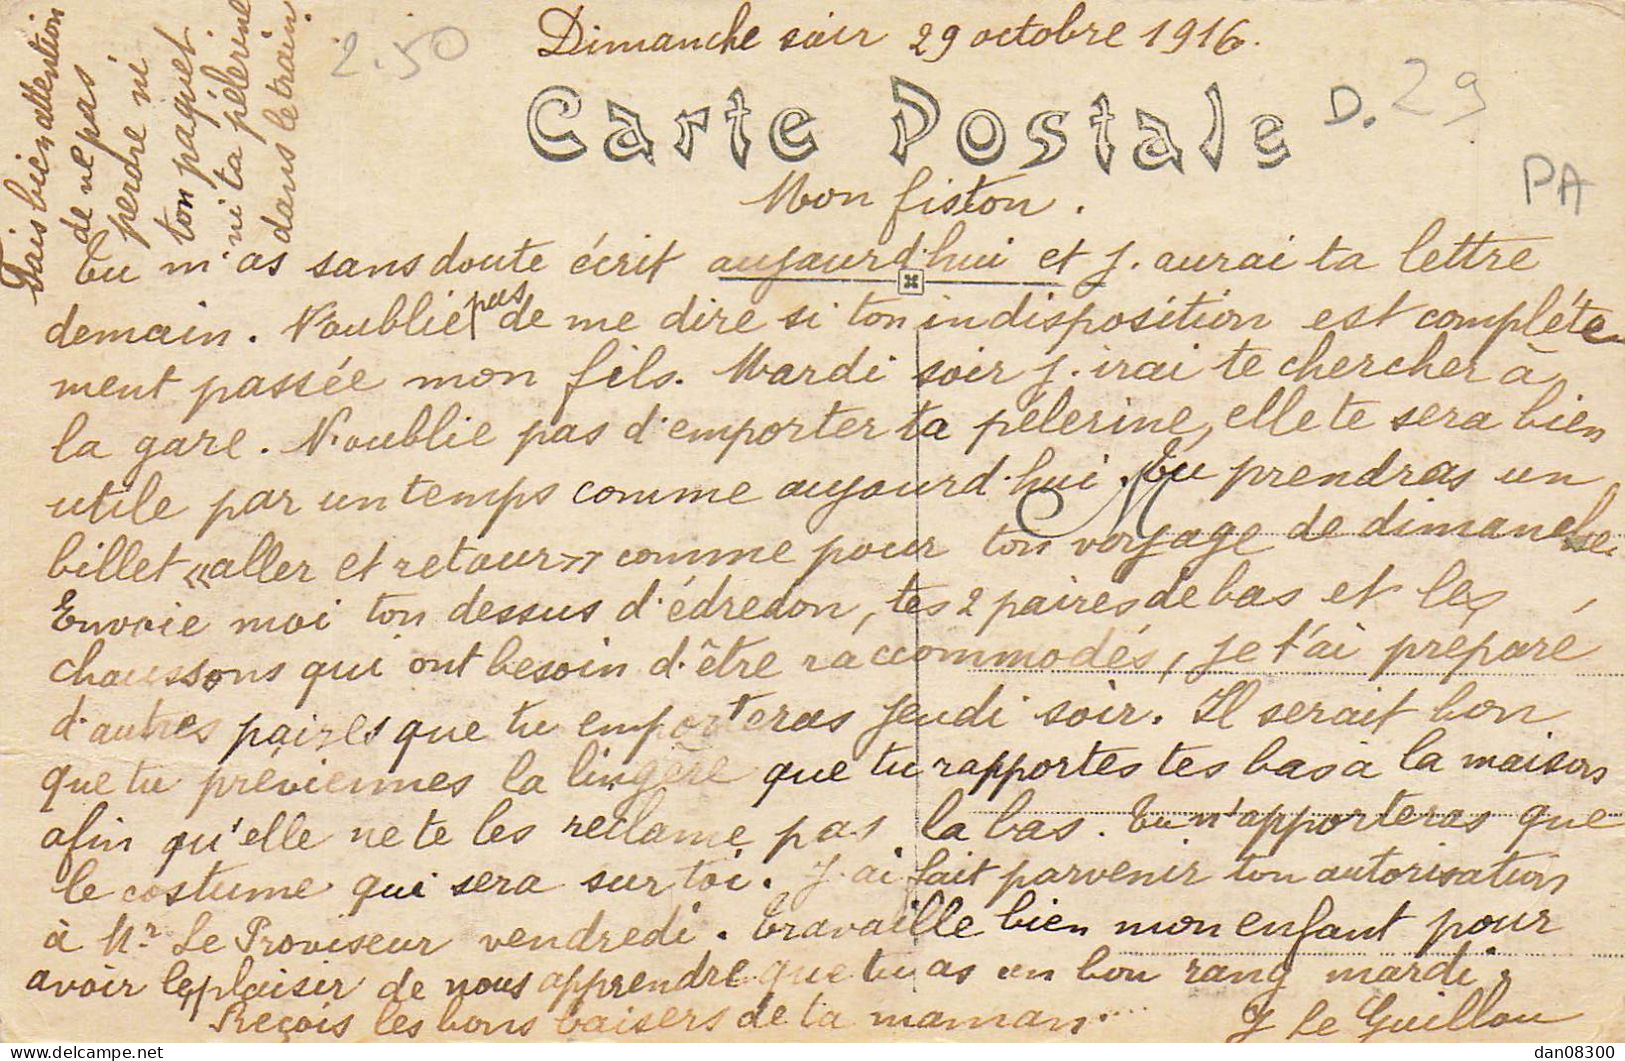 Dimanche soir 29 octobre 1916.
2.50
Carte Postale
D. 29
PA
Mon fiston.
Tu m'as sans doute écrit aujourd'hui et j'aurai ta lettre
demain. N'oublie pas de me dire si ton indisposition est complète
ment passée mon fils. Mardi soir j'irai te chercher à
la gare. N'oublie pas d'emporter ta pélerine, elle te sera bien
utile par un temps comme aujourd'hui. Tu prendras un
billet «aller et retour» comme pour ton voyage de dimanche.
Envoie moi ton dessus d'édredon, tes 2 paires de bas et les
chaussons qui ont besoin d'être raccommodés, je t'ai préparé
d'autres paires que tu emporteras jeudi soir. Il serait bon
que tu préviennes la lingère que tu rapportes tes bas à la maison
afin qu'elle ne te les réclame pas la bas. Tu n'apporteras que
le costume qui sera sur toi. J'ai fait parvenir ton autorisation
à Mr Le Proviseur vendredi. Travaille bien mon enfant pour
avoir le plaisir de nous apprendre que tu as un bon rang mardi.
Reçois les bons baisers de ta maman.
J Le Guillou
Fais bien attention
de ne pas
perdre ni
ton paquet
ni ta pélerine
dans le train
dan08300